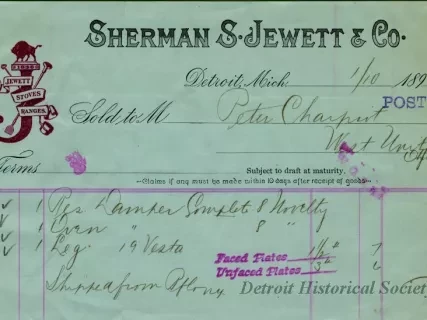 SHERMAN S. JEWETT & CO.
JEWETT
STOVES
RANGES
Detroit, Mich. 1/10 189
POST
Sold to M Peter
West
Terms
Subject to draft at maturity.
Claims if any must be made within 10 days after receipt of goods
1 Damper Complet 8 Novelty
1 Oven " 8 "
1 Leg 19 Vesta
Faced Plates
Unfaced Plates
Shipped from
Detroit Historical Society